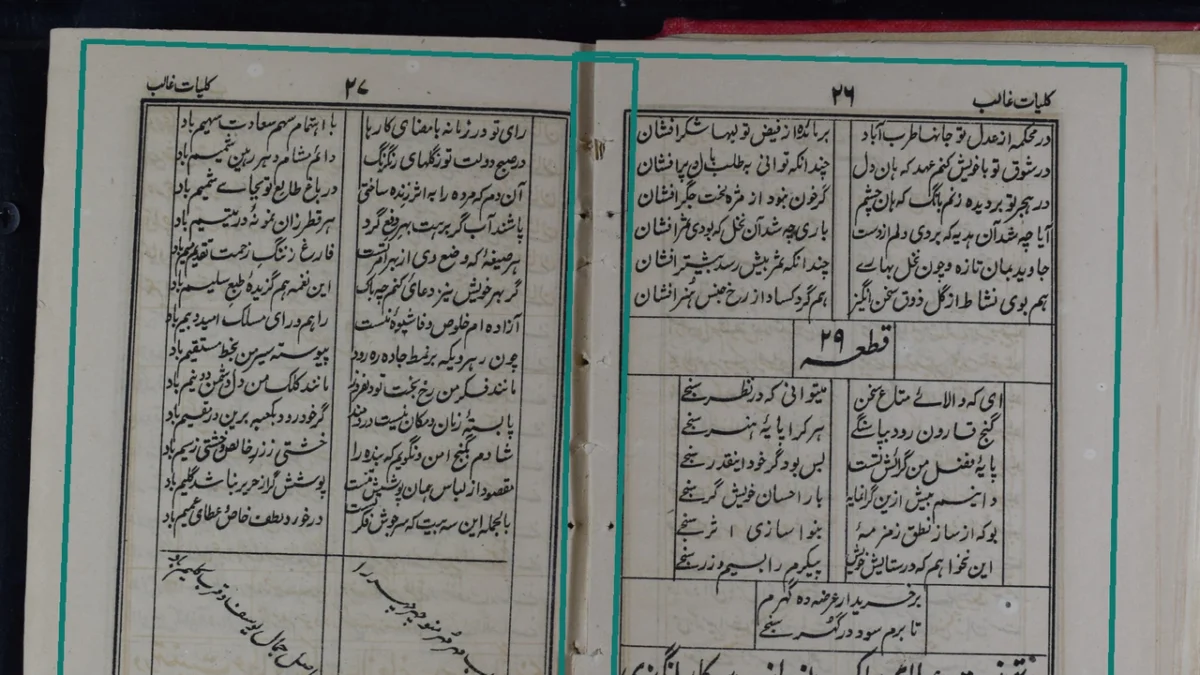 کلیات غالب
۲۶
در محکمہ از عدل تو جانہا طرب آباد
بر مائدہ از فیض تو لبہا شکر افشان
در شوق تو با خویش کنم عہد کہ ہان دل
چندانکہ توانی بہ طلب بال و پر افشان
در ہجر تو بر دیدہ زنم بانگ کہ ہان چشم
گر خون نبود از مژہ لخت جگر افشان
آیا چہ شد آن ہدیہ کہ بردی دلم از دست
باری چہ شد آن نخل کہ بودی ثمر افشان
جاوید بمان تازہ و چون نخل بہارے
چندانکہ ثمر بیش رسد بیشتر افشان
ہم بوی نشاط از گل ذوق سخن انگیز
ہم گرد کساد از رخ جنس ہنر افشان
قطعہ ۲۹
ای کہ والاے متاع سخن
میتوانی کہ در نظر سنجے
گنج قارون رود بپاسنگے
ہر کرا پایۂ ہنر سنجے
پایۂ فضل من گرانش تست
بس بود گر خود اینقدر سنجے
دانیم بیش ازین گرانمایہ
بار احسان خویش گر سنجے
بو کہ از ساز نطق زمزمۂ
بنوا سازی اثر سنجے
این نخواہم کہ در ستایش خویش
پیکرم را بسیم و زر سنجے
بر خریدار عرضہ دہ گہرم
تا برم سود در گہر سنجے
کلیات غالب
۲۷
رای تو در زمانہ با مضای کارہا
با اہتمام سہم سعادت سہیم باد
در صبح دولت تو ز گلہای رنگ رنگ
دائم مشام دہر رہین شمیم باد
آن دم کہ مردہ را بہ اثر زندہ ساختی
در باغ طالع تو بجاے نسیم باد
پاشند آب گر بر ہت بہر دفع گرد
ہر قطرہ زان نمونۂ در یتیم باد
ہر صیغۂ کہ وضع وی از بہر امر تست
فارغ ز ننگ زحمت تقدیم میم باد
گر بہر خویش نیز دعای کنم چہ باک
این نغمہ ہم گزیدۂ طبع سلیم باد
آزادہ ام خلوص و فا شیوۂ منست
راہم ورای مسلک امید و بیم باد
چون رہرویکہ بر نمط جادہ رہ رود
پیوستہ سیر من بخط مستقیم باد
مانند فکر من رخ بخت تو دلفروز
مانند کلک من دل دشمن دو نیم باد
پابستۂ زمان و مکان نیست دردمند
گر خود رود بکعبہ برین در مقیم باد
شادم بکنج امن و نگویم کہ بندہ را
خشتی ز زر خالص و خشتی ز سیم باد
مقصود از لباس ہمان پوشش تنست
پوشش گر از حریر نباشد گلیم باد
بالجملہ این سہ بیت کہ سرجوش فکر تست
در خورد لطف خاص و عطای عمیم باد